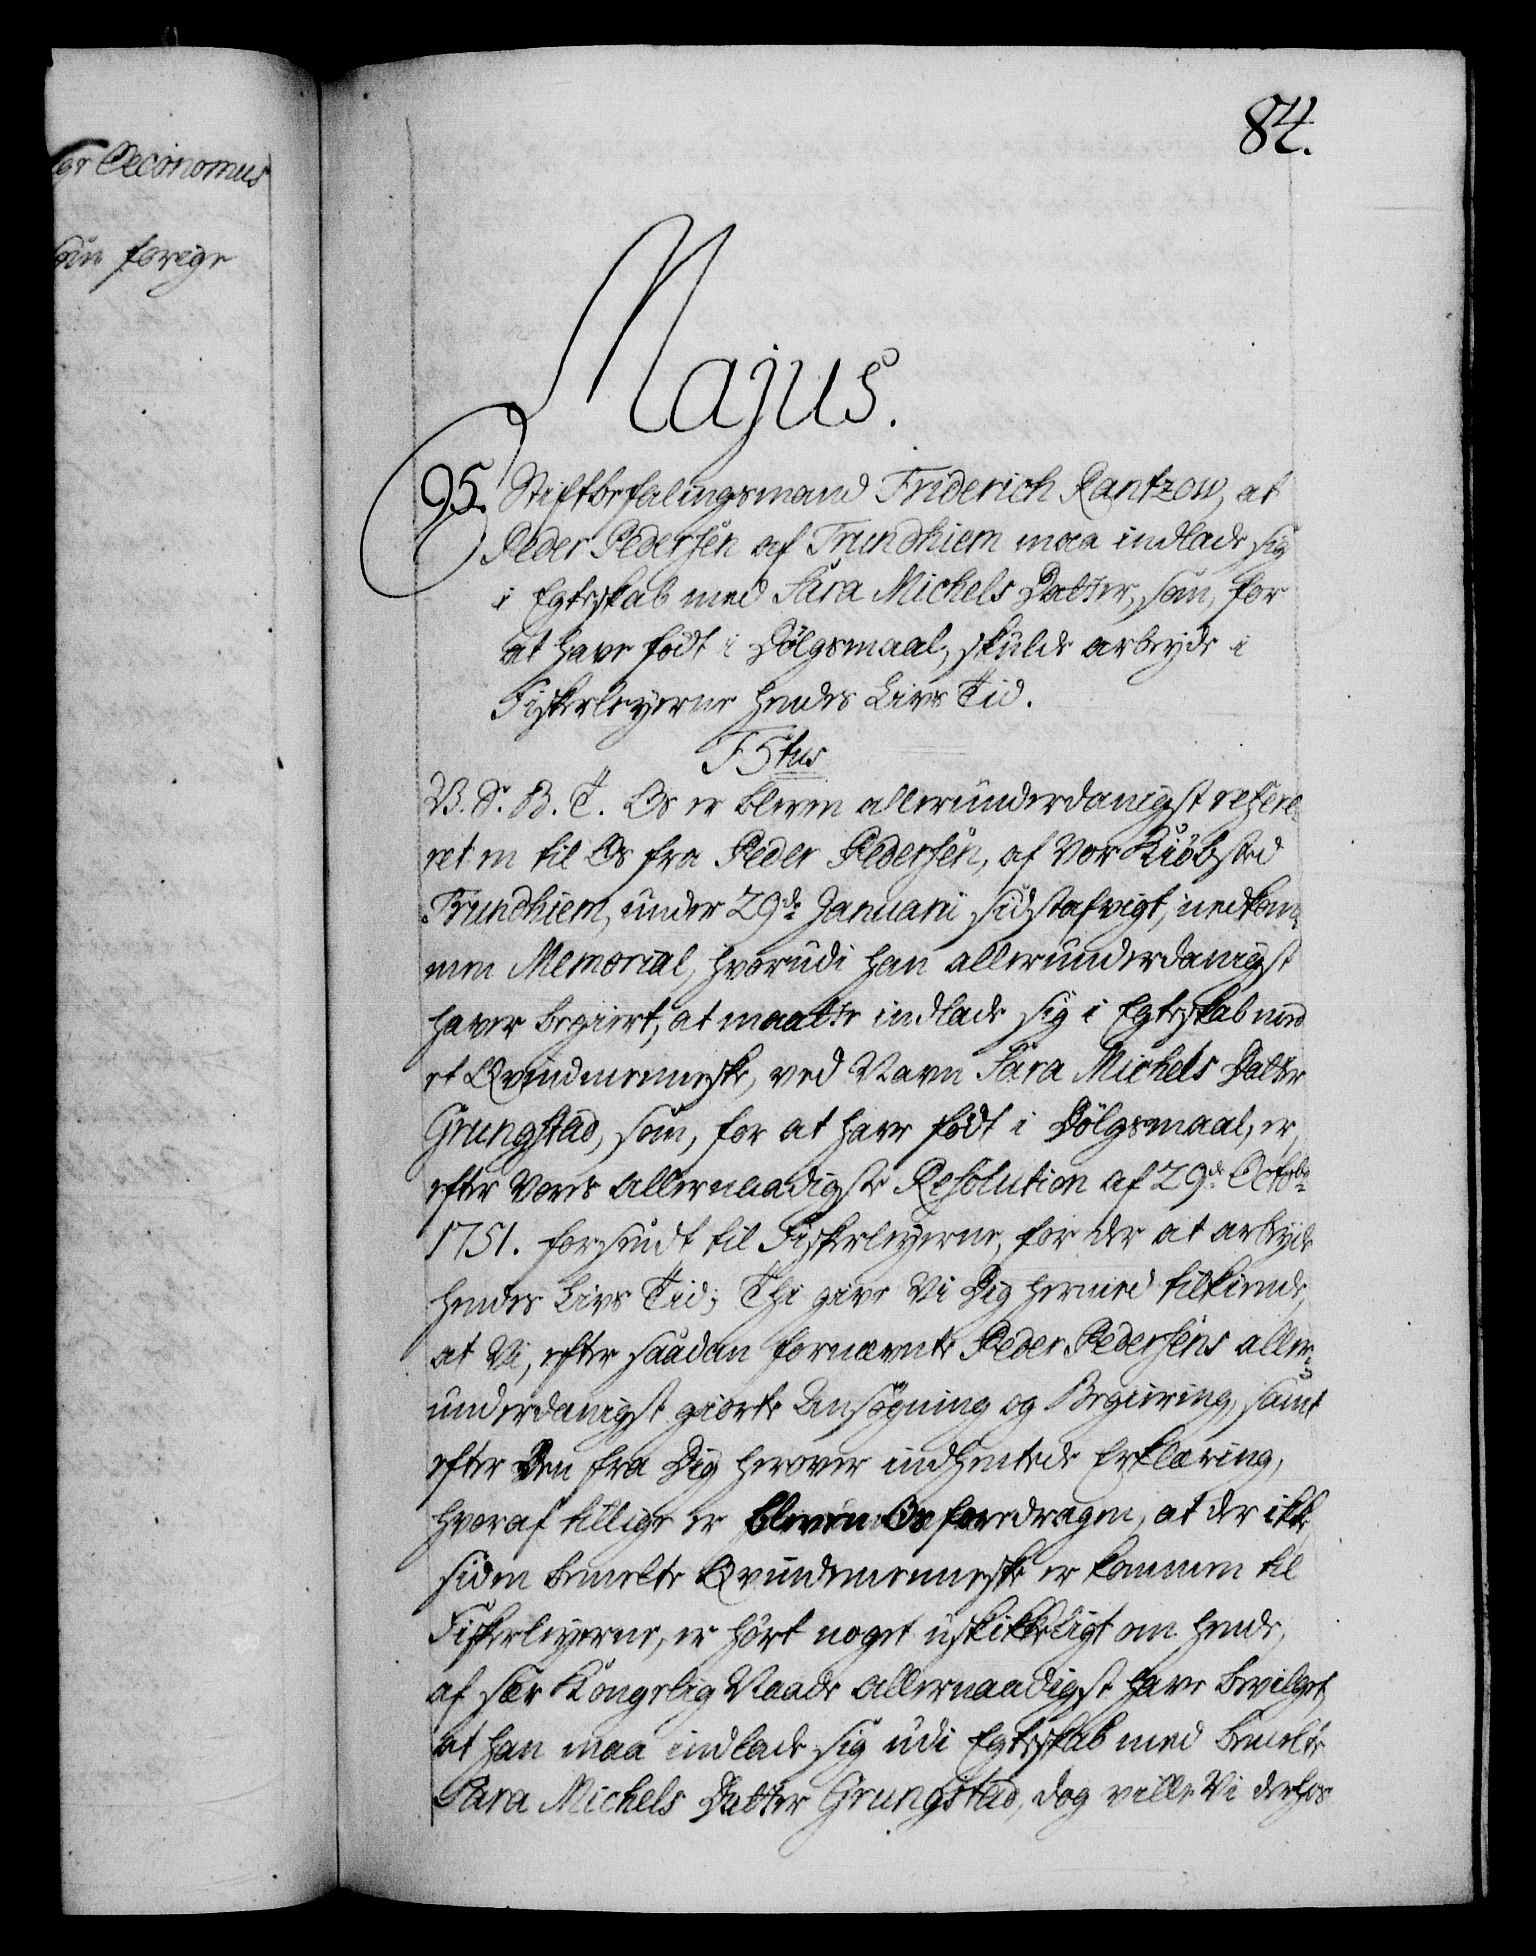 84.
er Oeconomus
sin forige
Majus.
95. Stiftbefalingsmand Friderich Rantzow, at
Peder Pedersen af Trundhiem maa indlade sig
i Egteskab med Sara Michels Datter, som, for
at have födt i Dölgsmaal, skulde arbeyde i
Fiskerleyerne hendes Livs Tid.
F 5tus
V. S. B. T. Os er bleven allerunderdanigst refere-
ret en til Os fra Peder Pedersen, af Vor Kiöbsted
Trundhiem, under 29de Januarii sidstafvigt, indkom-
men Memorial, hvorudi han allerunderdanigst
haver begiert, at maatte indlade sig i Egteskab med
et Qvindmenneske, ved Navn Sara Michels Datter
Grungstad, som, for at have födt i Dölgsmaal, er,
efter Vores allernaadigste Resolution af 29de Octobr
1751. forsendt til Fiskerleyerne, for der at arbeyde
hendes Livs Tid; Thi give Vi Dig hermed tilkiende,
at Vi, efter saadan fornævnte Peder Pedersens aller-
underdanigst giorte Ansögning og Begiering, samt
efter Den fra Dig herover indhentede Erklæring,
hvoraf tillige er bleven Os foredragen, at der ikke
siden bemelte Qvindemenneske er kommen til
Fiskerleyerne, er hört noget uskikkeligt om hende,
af sær Kongelig Naade allernaadigst have bevilget,
at han maa indlade sig udi Egteskab med bemelte
Sara Michels Datter Grungstad, dog ville Vi derhos